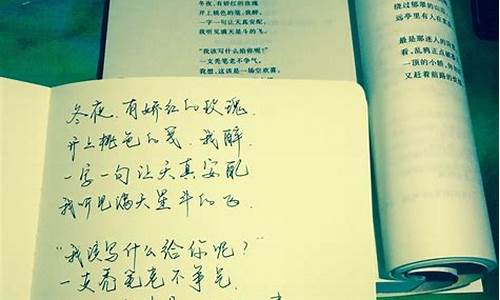 冬夜,有娇红的玫瑰
开上桃色的笺,我醉,
一字一句让天真安配,
我听见满天星斗的飞。
“我该写什么给你呢?”
一支秃笔老不争气。
我想,这该是一场空欢喜,
绕过郁郁的山
远亭里有人在
最是那迷人的
看,乱鸦正点破
一顶的小轿,
又赶着前路的
冬夜,有娇红的玫瑰,
开上桃色的笺,我醉,
一字一句让天真安配
我听见满天星斗的飞.
“我该写什么给你呢?”
一支秃笔老不争气.